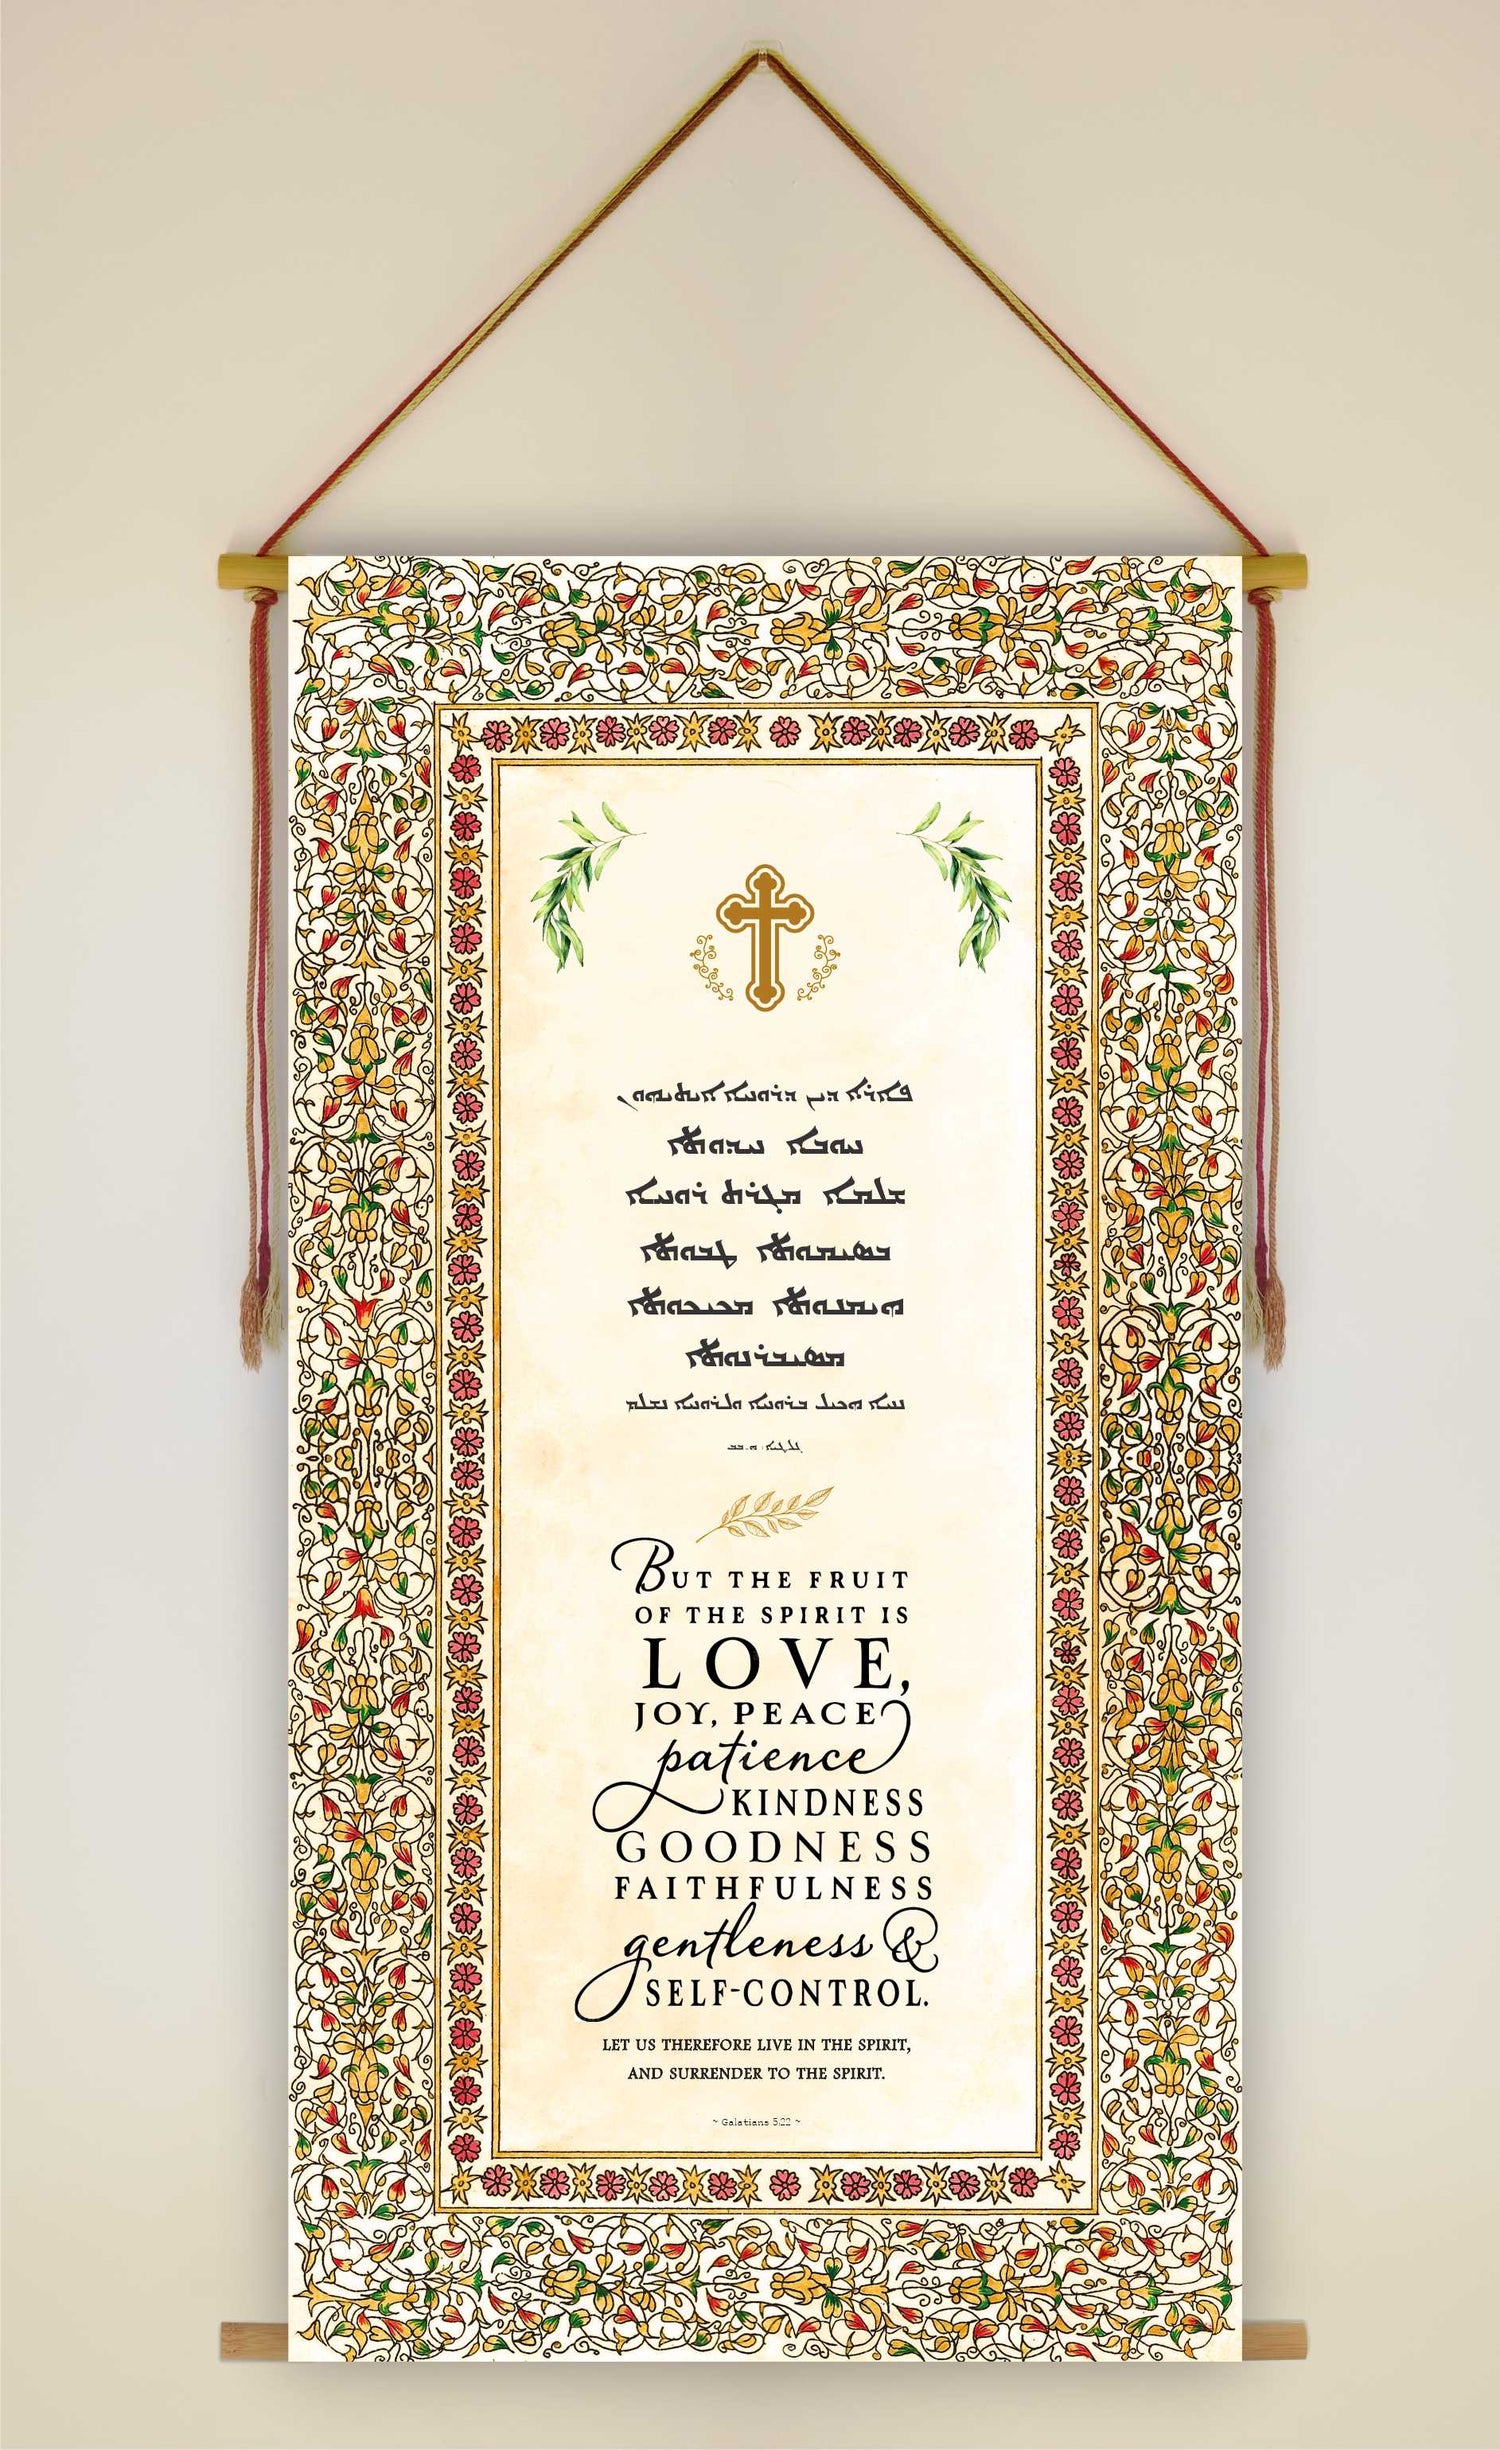 ܦܐܪ̈ܐ ܕܝܢ ܕܪܘܚܐ ܐܝܬܝܗܘܢ
ܚܘܒܐ ܚܕܘܬܐ
ܫܠܡܐ ܡܓܪܬ ܪܘܚܐ
ܒܣܝܡܘܬܐ ܛܒܘܬܐ
ܗܝܡܢܘܬܐ ܡܟܝܟܘܬܐ
ܡܣܝܒܪܢܘܬܐ
ܢܚܐ ܗܟܝܠ ܒܪܘܚܐ ܘܠܪܘܚܐ ܢܫܠܡ
BUT THE FRUIT
OF THE SPIRIT IS
LOVE,
JOY, PEACE
patience
KINDNESS
GOODNESS
FAITHFULNESS
gentleness &
SELF-CONTROL.
LET US THEREFORE LIVE IN THE SPIRIT,
AND SURRENDER TO THE SPIRIT.
~ Galatians 5:22 ~